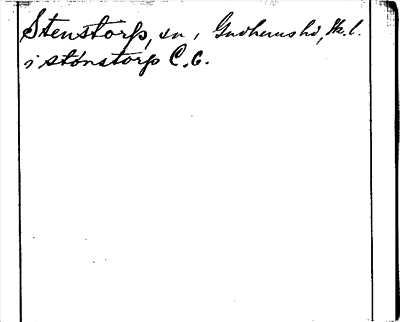 Stenstorp, sn, Gudhems hd, Sk. l.
i stønstorp C. C.